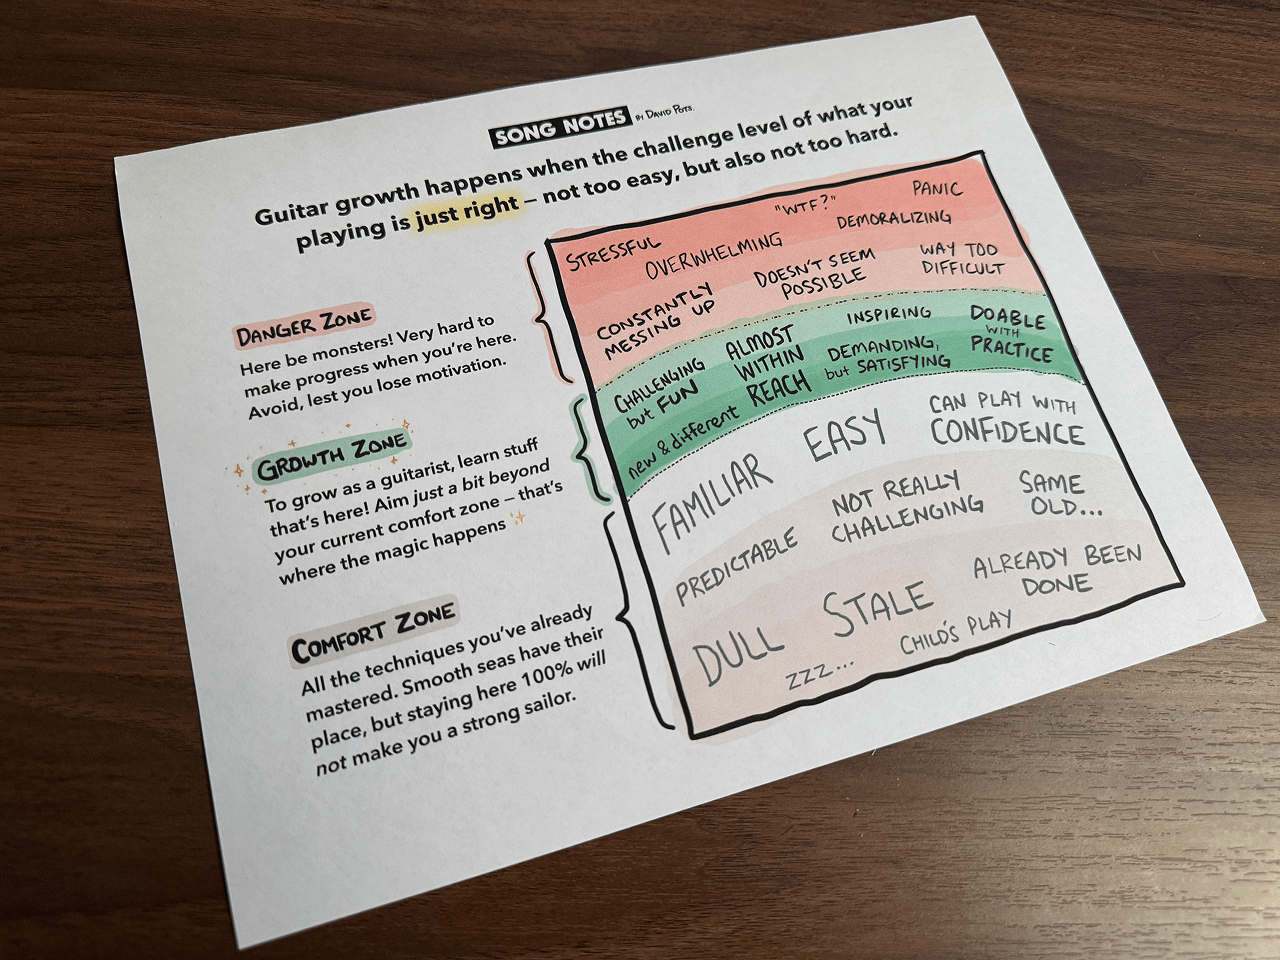 SONG NOTES BY DAVID POTS
Guitar growth happens when the challenge level of what your
playing is just right – not too easy, but also not too hard.
DANGER ZONE
Here be monsters! Very hard to
make progress when you're here.
Avoid, lest you lose motivation.
GROWTH ZONE
To grow as a guitarist, learn stuff
that's here! Aim just a bit beyond
your current comfort zone – that's
where the magic happens
COMFORT ZONE
All the techniques you've already
mastered. Smooth seas have their
place, but staying here 100% will
not make you a strong sailor.
STRESSFUL
OVERWHELMING
"WTF?"
PANIC
DEMORALIZING
CONSTANTLY
MESSING UP
DOESN'T SEEM
POSSIBLE
WAY TOO
DIFFICULT
CHALLENGING
but FUN
ALMOST
WITHIN
REACH
INSPIRING
DOABLE
WITH
PRACTICE
new & different
DEMANDING,
but SATISFYING
FAMILIAR
EASY
CAN PLAY WITH
CONFIDENCE
PREDICTABLE
NOT REALLY
CHALLENGING
SAME
OLD...
DULL
STALE
ALREADY BEEN
DONE
ZZZ...
CHILD'S PLAY